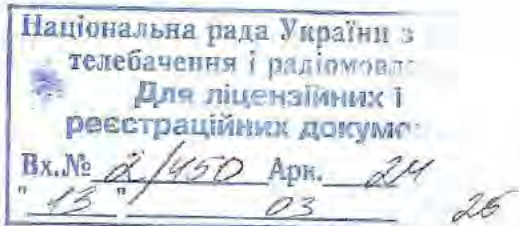 Національна рада України з
телебачення і радіомовле
Для ліцензійних і
реєстраційних докумен
Вх.№ 2/450 Арк. 24
"13" 03 25